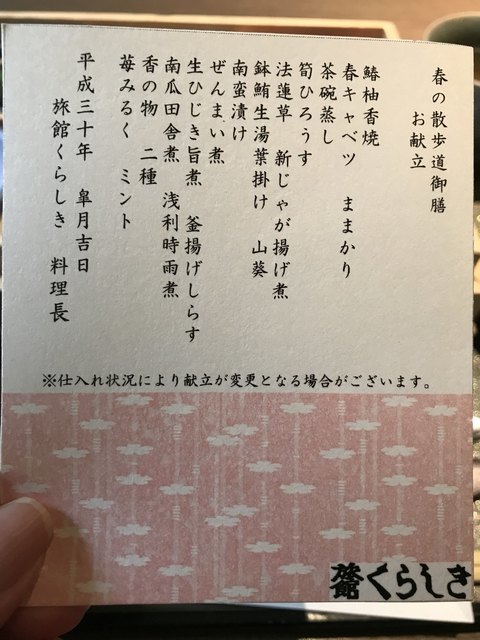 春の散歩道御膳
お献立
鰆柚香焼
春キャベツ　ままかり
茶碗蒸し
筍ひろうす
法蓮草　新じゃが揚げ煮
鉢鮪生湯葉掛け　山葵
南蛮漬け
ぜんまい煮
生ひじき旨煮　釜揚げしらす
南瓜田舎煮　浅利時雨煮
香の物　二種
苺みるく　ミント
平成三十年　皐月吉日
旅館くらしき　料理長
※仕入れ状況により献立が変更となる場合がございます。
旅館くらしき